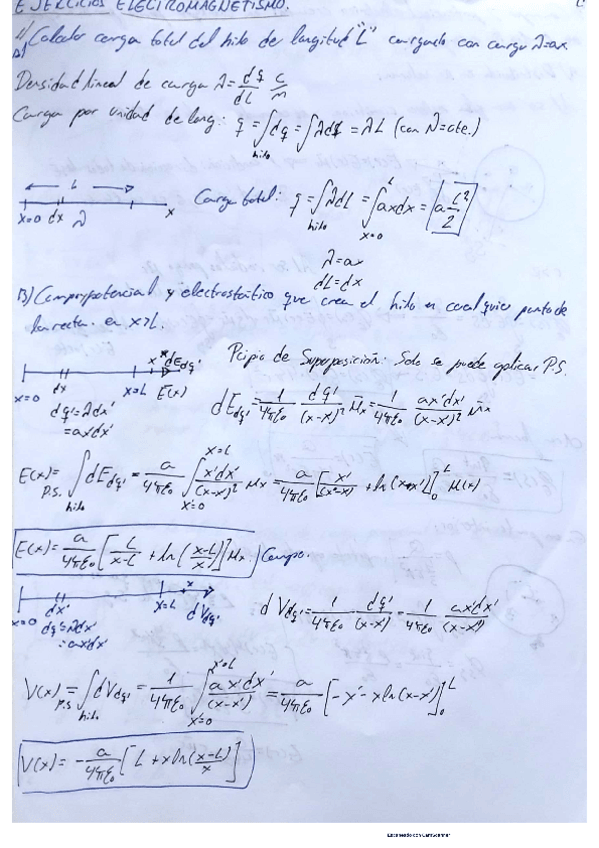 EJERCICIOS ELECTROMAGNETISMO.
1) Calcular carga total del hilo de longitud "L" cargado con carga λ=ax
A)
Densidad lineal de carga λ = dq/dL C/m
Carga por unidad de long: q = ∫hilo dq = ∫λdq = λL (con λ=cte.)
L
x=0 dx λ x
Carga total: q = ∫hilo λdL = ∫_{x=0}^{L} axdx = a L²/2
λ=ax
dL=dx
B) y electrostático que crea el hilo en cualquier punto de
la recta. en x>L.
x dE_{dq'}
x=0 dx x=L E(x)
Pcipio de Superposición: Solo se puede aplicar P.S.
dq'=λdx'
=ax'dx'
dE_{dq'} = 1/4πε₀ dq'/(x-x')² ūx = 1/4πε₀ ax'dx'/(x-x')² ūx
E(x) =_{P.S.} ∫hilo dE_{dq'} = a/4πε₀ ∫_{x'=0}^{x=L} x'dx'/(x-x')² ux = a/4πε₀ [x'/(x-x') + ln(x-x')]₀^L u(x)
E(x) = a/4πε₀ [L/(x-L) + ln((x-L)/x)] ux Campo.
x
x=0 dx' x=L dV_{dq'}
dq'=λdx'
=ax'dx'
dV_{dq'} = 1/4πε₀ dq'/(x-x') = 1/4πε₀ ax'dx'/(x-x')
V(x) =_{P.S} ∫hilo dV_{dq'} = 1/4πε₀ ∫_{x'=0}^{x'=L} ax'dx'/(x-x') = a/4πε₀ [-x'-xln(x-x')]₀^L
V(x) = -a/4πε₀ [L + xln((x-L)/x)]
Escaneado con CamScanner